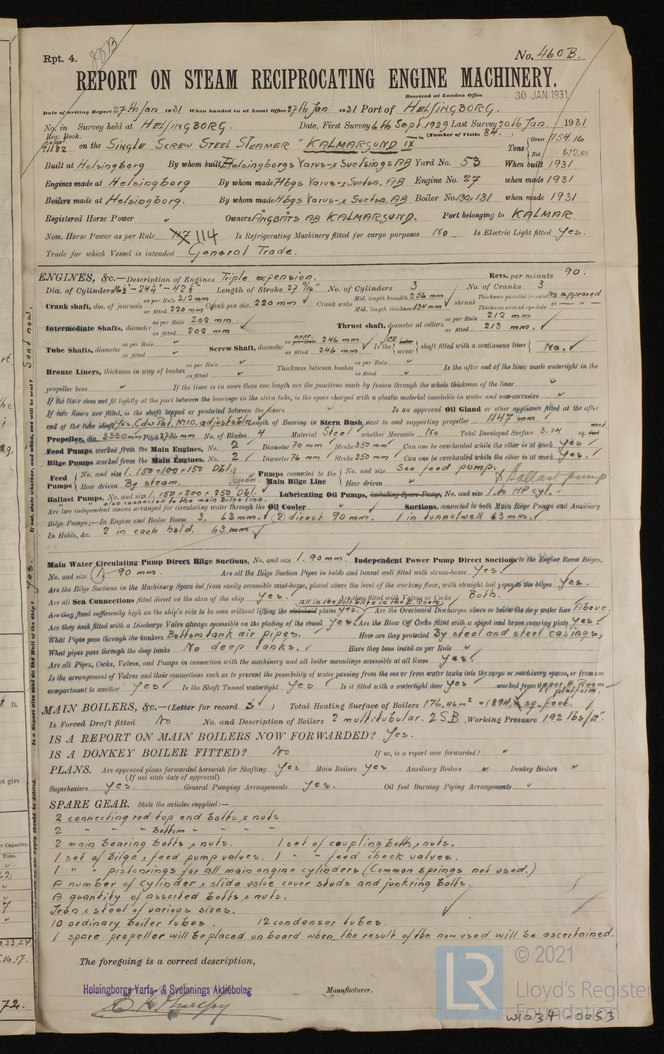 Rpt. 4. No. 460B.
REPORT ON STEAM RECIPROCATING ENGINE MACHINERY.
Received at London Office 30 JAN 1931
Date of writing Report 27th Jan 1931 When handed in at Local Office 27th Jan 1931 Port of HELSINGBORG.
No. in Survey held at HELSINGBORG. Date, First Survey 6th Sept 1929 Last Survey 20th Jan 1931
Reg. Book. (Number of Visits 84.)
91182 on the SINGLE SCREW STEEL STEAMER "KALMARSUND IX Tons Gross Net
Built at Helsingborg By whom built Helsingborgs Varvs- & Svetsnings AB Yard No. 53 When built 1931
Engines made at Helsingborg By whom made Hbgs Varvs- & Svetsn. AB Engine No. 27 when made 1931
Boilers made at Helsingborg. By whom made Hbgs Varvs- & Svetsn. AB Boiler No. 130 & 131 when made 1931
Registered Horse Power Owners ÅNGBÅTS AB KALMARSUND. Port belonging to KALMAR.
Nom. Horse Power as per Rule 114 Is Refrigerating Machinery fitted for cargo purposes No Is Electric Light fitted Yes.
Trade for which Vessel is intended General Trade.
ENGINES, &c.—Description of Engines Triple expension. Revs. per minute 90.
Dia. of Cylinders Length of Stroke No. of Cylinders 3 No. of Cranks 3
Crank shaft, dia. of journals as per Rule 212 mm as fitted 220 mm Crank pin dia. 220 mm Crank webs Mid. length breadth Mid. length thickness shrunk Thickness parallel to axis as approved
Intermediate Shafts, diameter as per Rule 202 mm as fitted 202 mm Thrust shaft, diameter at collars as per Rule 212 mm as fitted 213 mm.
Tube Shafts, diameter as per Rule as fitted Screw Shaft, diameter as fitted 246 mm Is the screw shaft fitted with a continuous liner No.
Bronze Liners, thickness in way of bushes as per Rule as fitted Thickness between bushes as per Rule as fitted Is the after end of the liner made watertight in the
propeller boss If the liner is in more than one length are the junctions made by fusion through the whole thickness of the liner
If the liner does not fit tightly at the part between the bearings in the stern tube, is the space charged with a plastic material insoluble in water and non-corrosive
If two liners are fitted, is the shaft lapped or protected between the liners Is an approved Oil Gland or other appliance fitted at the after
end of the tube shaft Yes. Length of Bearing in Stern Bush next to and supporting propeller 1147 mm
Propeller, dia. 3350 mm Pitch No. of Blades 4 Material Steel whether Moveable No Total Developed Surface 3.74 sq.
Feed Pumps worked from the Main Engines, No. 2 Diameter 70 mm Stroke 350 mm Can one be overhauled while the other is at work Yes
Bilge Pumps worked from the Main Engines, No. 2 Diameter 76 mm Stroke 350 mm Can one be overhauled while the other is at work Yes.
Feed Pumps No. and size 1. 150×100×150 Dbl. How driven By steam. Pumps connected to the Main Bilge Line No. and size See feed pump. How driven & Ballast pump
Ballast Pumps, No. and size 1. 150×200×250 Dbl. Lubricating Oil Pumps, including Spare Pump, No. and size 1. to HP cyl.
also connected to the main bilge line.
Are two independent means arranged for circulating water through the Oil Cooler Suctions, connected to both Main Bilge Pumps and Auxiliary
Bilge Pumps;—In Engine and Boiler Room 3. 63 mm. 2 direct 90 mm. 1 in tunnelwell 63 mm.
In Holds, &c. 2 in each hold. 63 mm
Main Water Circulating Pump Direct Bilge Suctions, No. and size 1. 90 mm. Independent Power Pump Direct Suctions to the Engine Room Bilges,
No. and size 1. 90 mm. Are all the Bilge Suction Pipes in holds and tunnel well fitted with strum-boxes Yes
Are the Bilge Suctions in the Machinery Space led from easily accessible mud-boxes, placed above the level of the working floor, with straight tail pipes to the bilges Yes.
Are all Sea Connections fitted direct on the skin of the ship Yes. Are they fitted with Valves or Cocks Both.
Are they fixed sufficiently high on the ship's side to be seen without lifting the platform plates Yes. Are the Overboard Discharges above or below the deep water line Above.
Are they each fitted with a Discharge Valve always accessible on the plating of the vessel Yes. Are the Blow Off Cocks fitted with a spigot and brass covering plate Yes
What Pipes pass through the bunkers Bottomtank air pipes. How are they protected By steel and steel casings.
What pipes pass through the deep tanks No deep tanks. Have they been tested as per Rule
Are all Pipes, Cocks, Valves, and Pumps in connection with the machinery and all boiler mountings accessible at all times Yes
Is the arrangement of Valves and their connections such as to prevent the possibility of water passing from the sea or from water tanks into the cargo or machinery spaces, or from one
compartment to another Yes Is the Shaft Tunnel watertight Yes Is it fitted with a watertight door Yes worked from upper E. Room platform.
MAIN BOILERS, &c.—(Letter for record S) Total Heating Surface of Boilers 176,46 m² = (1894, sq. feet.
Is Forced Draft fitted No No. and Description of Boilers 2 multitubular. 2SB Working Pressure 192 lbs/□"
IS A REPORT ON MAIN BOILERS NOW FORWARDED? Yes.
IS A DONKEY BOILER FITTED? No If so, is a report now forwarded?
PLANS. Are approved plans forwarded herewith for Shafting Yes Main Boilers Yes Auxiliary Boilers Donkey Boilers
(If not state date of approval)
Superheaters Yes. General Pumping Arrangements Yes. Oil fuel Burning Piping Arrangements
SPARE GEAR. State the articles supplied:—
2 connecting rod top end bolts & nuts.
2 " " bottom " " "
2 main bearing bolts & nuts. 1 set of coupling bolts & nuts.
1 set of bilge & feed pump valves. 1 " " feed check valves.
1 " " pistonrings for all main engine cylinders (Common springs not used.)
A number of cylinder & slide valve cover studs and junkring bolts.
A quantity of assorted bolts & nuts.
Iron & steel of various sizes.
10 ordinary boiler tubes. 12 condenser tubes.
1 spare propeller will be placed on board when the result of the now used will be ascertained.
The foregoing is a correct description,
Helsingborgs Varfs- & Svetsnings Aktiebolag Manufacturer.
© 2021
LR Lloyd's Register
Foundation
W1034-0053